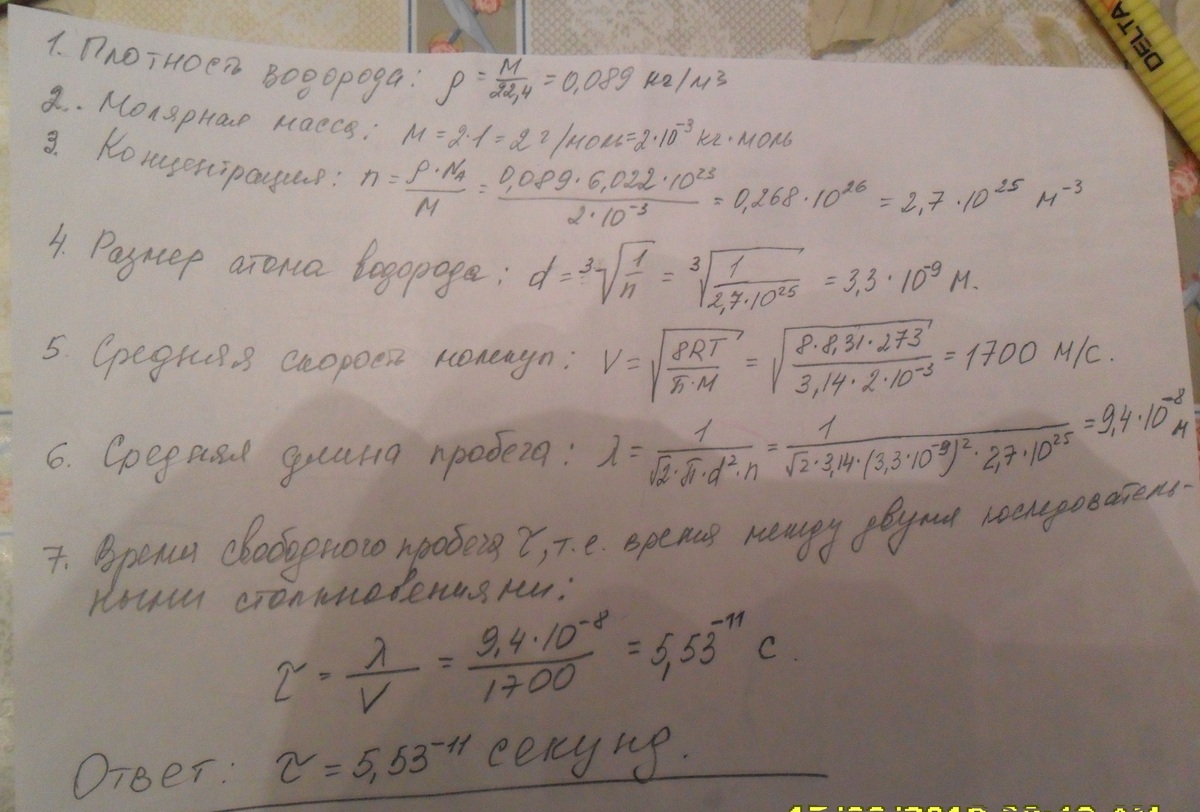 1. Плотность водорода: ρ = M/22,4 = 0,089 кг/м³
2. Молярная масса: M = 2·1 = 2 г/моль = 2·10⁻³ кг·моль
3. Концентрация: n = ρ·Nᴀ/M = 0,089·6,022·10²³/2·10⁻³ = 0,268·10²⁶ = 2,7·10²⁵ м⁻³
4. Размер атома водорода: d = ³√(1/n) = ³√(1/2,7·10²⁵) = 3,3·10⁻⁹ м.
5. Средняя скорость молекул: V = √(8RT/π·M) = √(8·8,31·273/3,14·2·10⁻³) = 1700 м/с.
6. Средняя длина пробега: λ = 1/√2·π·d²·n = 1/√2·3,14·(3,3·10⁻⁹)²·2,7·10²⁵ = 9,4·10⁻⁸ м
7. Время свободного пробега τ, т.е. время между двумя последователь-
ными столкновениями:
τ = λ/V = 9,4·10⁻⁸/1700 = 5,53⁻¹¹ с.
Ответ: τ = 5,53⁻¹¹ секунд.
DELTA